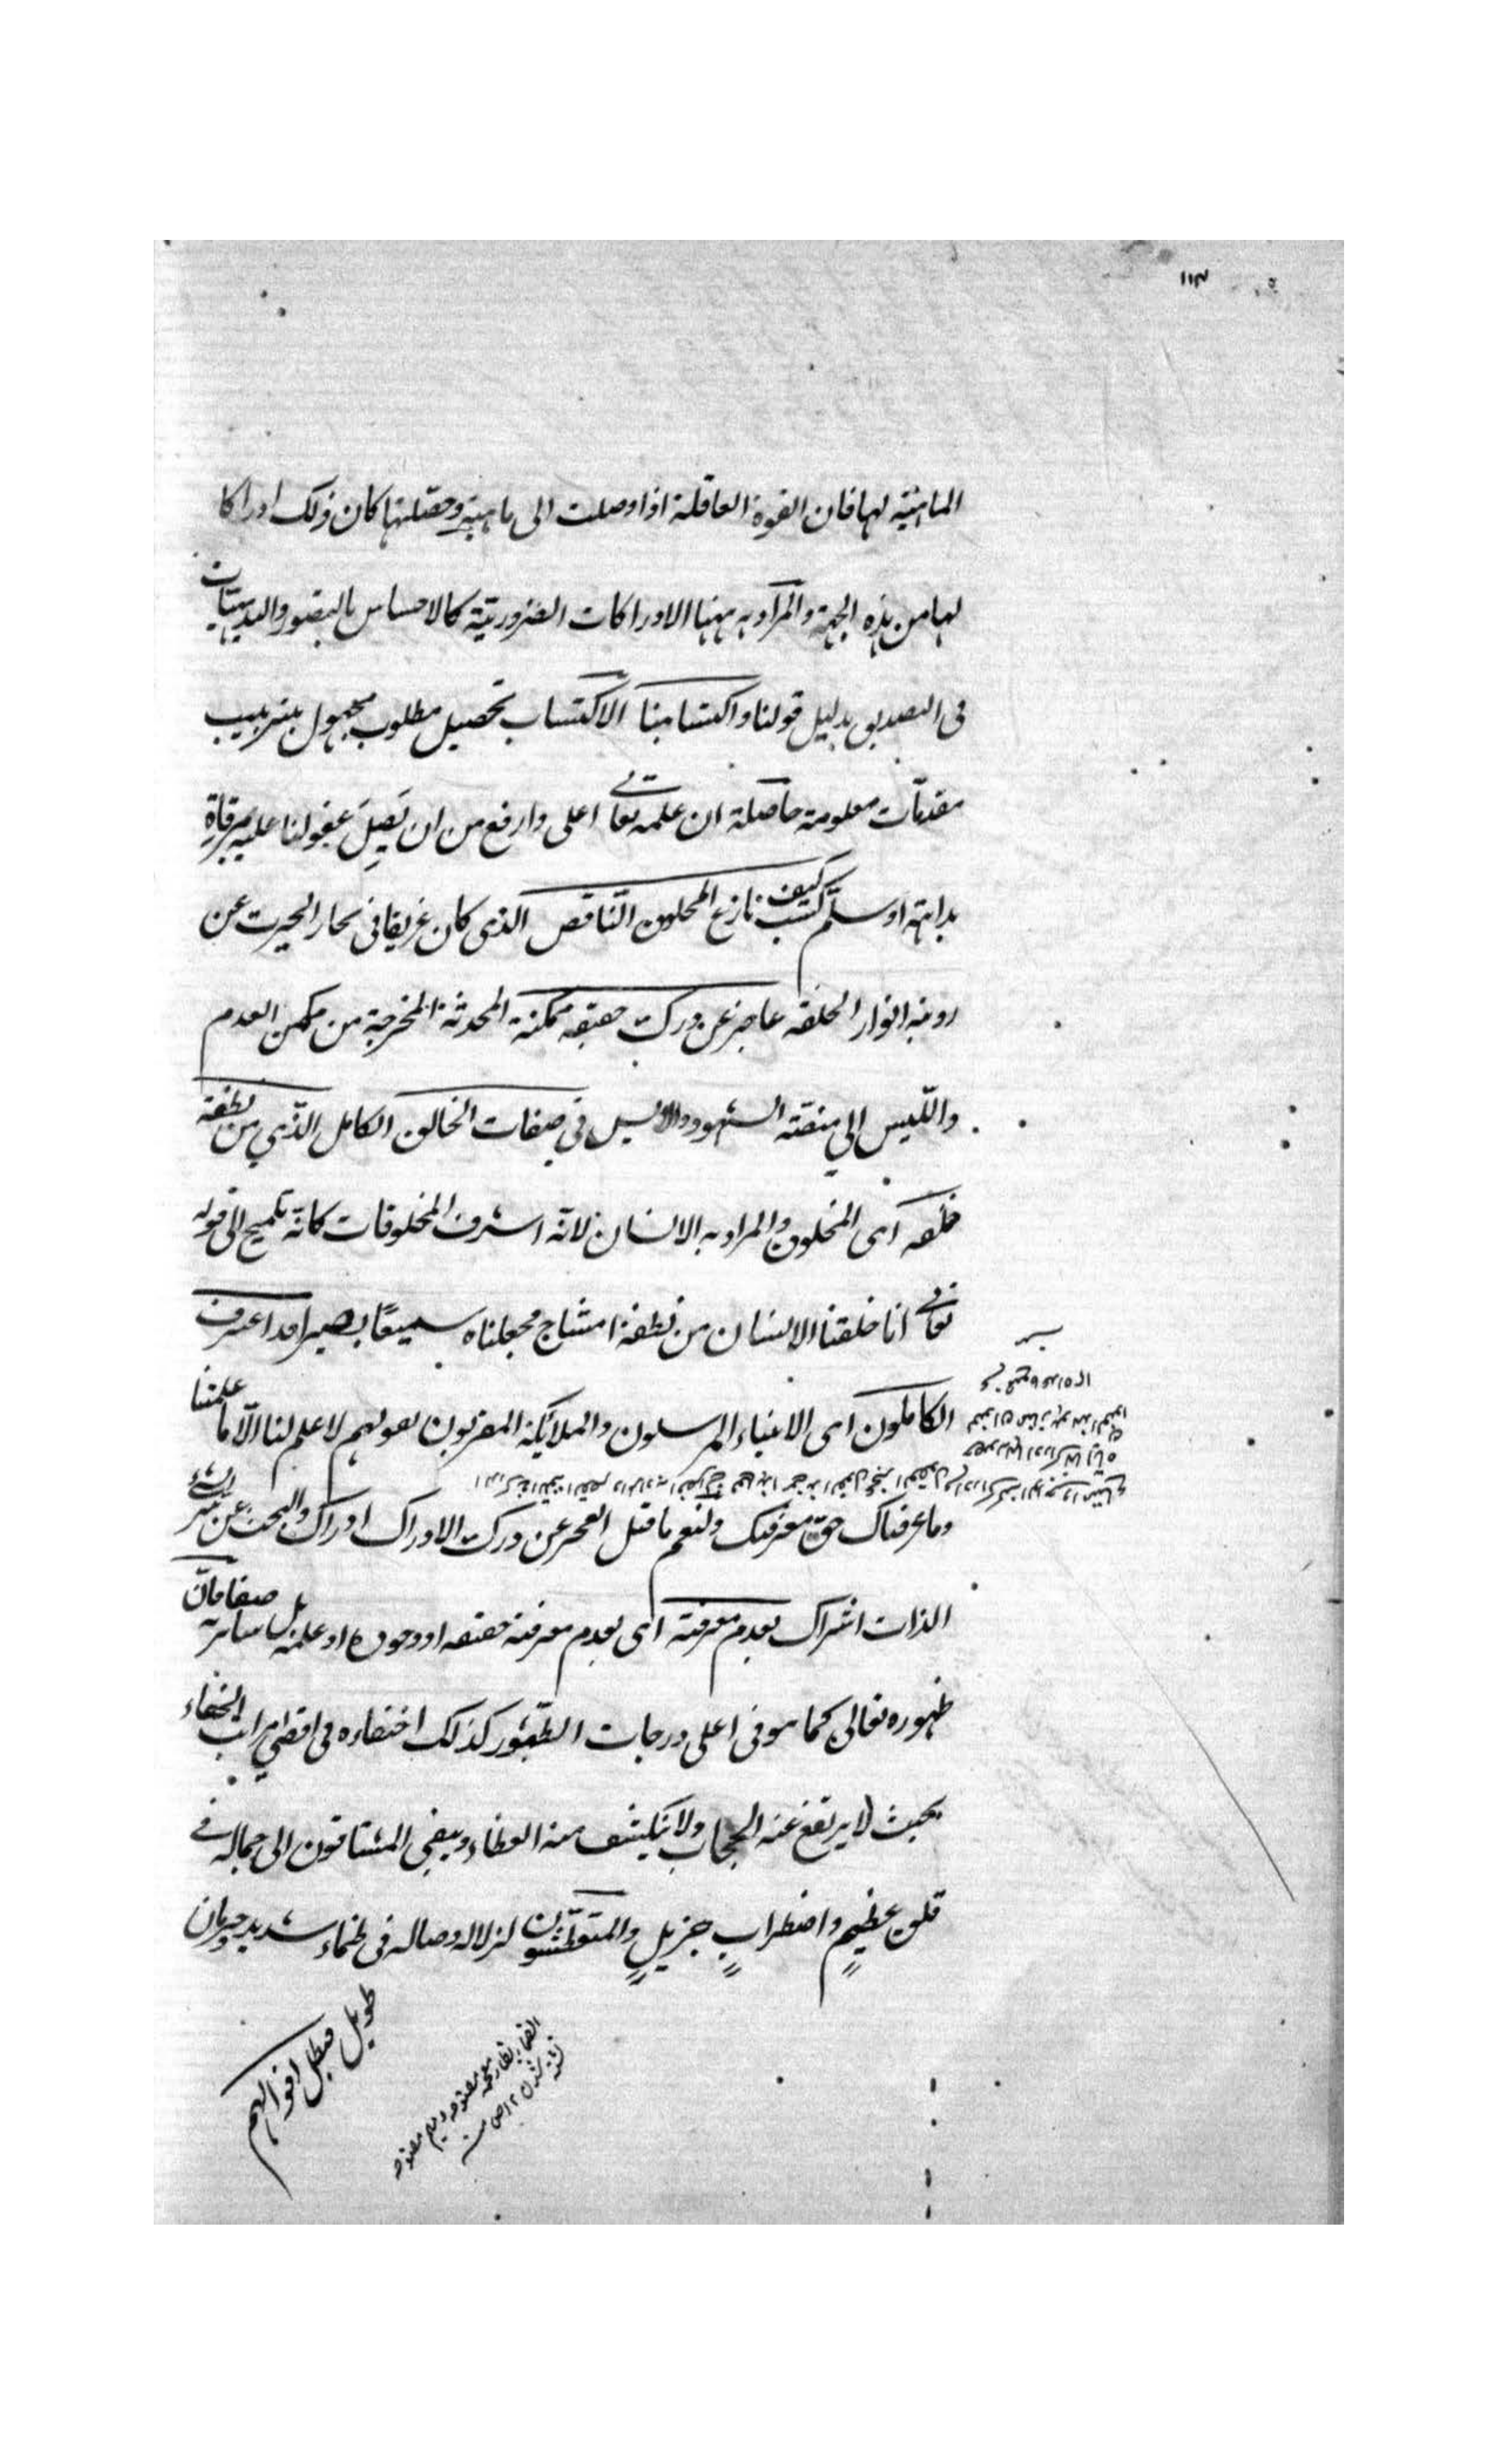 ١١٣
الماهية لها فان القوة العاقلة اذا وصلت الى ماهية وحصلتها كان ذلك ادراكا
لها من هذه الجهة والمراد به ههنا الادراكات الضرورية كالاحساس بالبصر والبديهيات
فى التصديق بدليل قولنا واكتسابنا الاكتساب تحصيل مطلوب مجهول بترتيب
مقدمات معلومة حاصلة ان علمه تعالى اعلى وارفع من ان يَصِلَ عقولنا عليه بمرقاة
بداهة او سلّم كسب كيف نازع المخلوق النّاقص الذى كان غريقا فى بحار الحيرت عن
انوار الخلقة عاجز عن درك حقيقة ممكنة المحدثة المخرجة من مكمن العدم
واللّيس الى منصّة الشهود والايس فى صفات الخالق الكامل الذّي من نطفة
خلقه اى المخلوق والمراد به الانسان لانّه اشرف المخلوقات كانّه تلميح الى قوله
تعالى انا خلقنا الانسان من نطفة امشاج فجعلناه سميعًا بصيرا قد اعترف
الكاملون اى الانبياء المرسلون والملائكة المقربون بقولهم لا علم لنا الّا ما علمتنا
وما عرفناك حقّ معرفتك ولنعم ما قيل العجز عن درك الادراك ادراك والبحث عن سرّ
الذات اشراك بعدم معرفته اى بعدم معرفة حقيقته او وجوده او علمه بل سائر صفاته فانّ
ظهوره تعالى كما هو فى اعلى درجات الظّهور كذلك اختفاءه فى اقصى مراتب الخفاء
بحيث لا يرتفع عنه الحجاب ولا ينكشف منه الغطاء ويبقى المشتاقون الى جماله فى
قلق عظيمٍ واضطرابٍ جزيلٍ والمتعطّشون لزلال وصاله فى ظماء شديد وحرمان
طويل فبطل اقوالهم